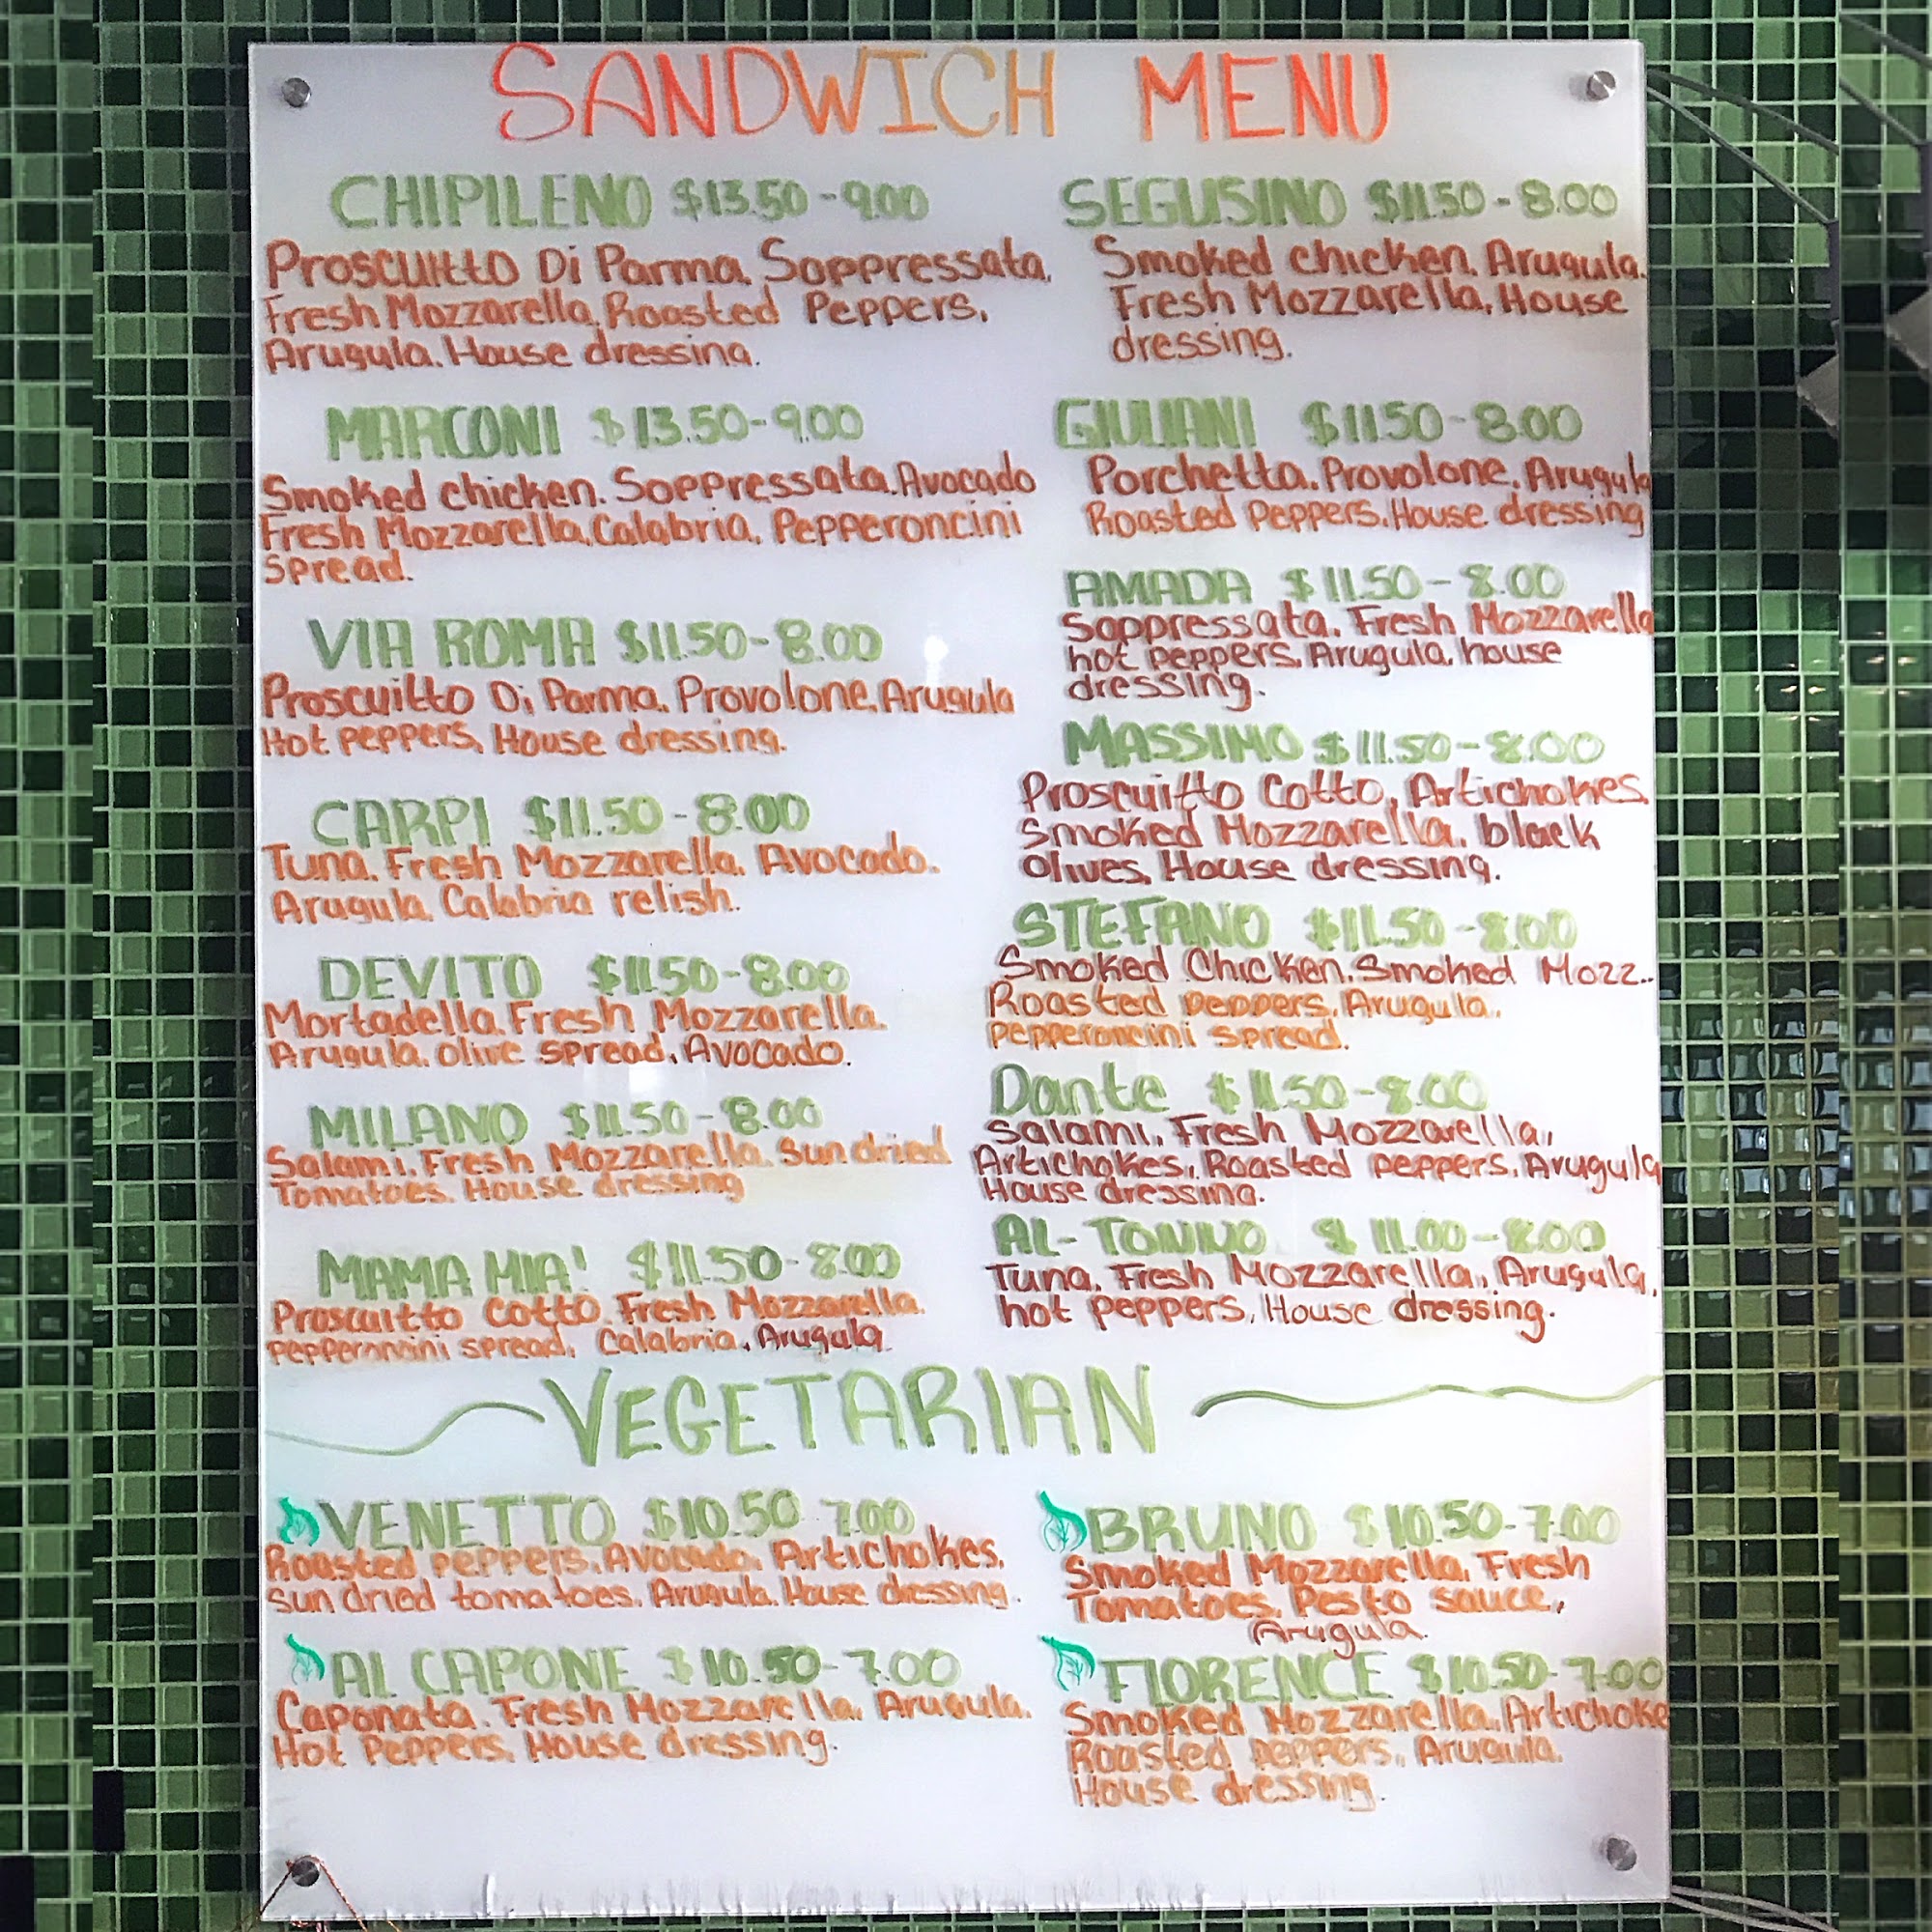 SANDWICH MENU
CHIPILENO $13.50-9.00
Proscuitto Di Parma, Soppressata,
Fresh Mozzarella, Roasted Peppers,
Arugula. House dressing.
MARCONI $13.50-9.00
Smoked chicken. Soppressata. Avocado
Fresh Mozzarella, Calabria, Pepperoncini
Spread.
VIA ROMA $11.50-8.00
Proscuitto Di Parma, Provolone, Arugula
Hot peppers, House dressing.
CARPI $11.50-8.00
Tuna. Fresh Mozzarella. Avocado.
Arugula, Calabria relish.
DEVITO $11.50-8.00
Mortadella. Fresh Mozzarella.
Arugula. olive spread, Avocado.
MILANO $11.50-8.00
Salami. Fresh Mozzarella. Sun dried
Tomatoes. House dressing
MAMA MIA! $11.50-8.00
Proscuitto Cotto. Fresh Mozzarella.
pepperoncini spread, Calabria, Arugula
SEGUSINO $11.50-8.00
Smoked chicken, Arugula.
Fresh Mozzarella, House
dressing.
GIULIANI $11.50-8.00
Porchetta. Provolone, Arugula
Roasted Peppers. House dressing
AMADA $11.50-8.00
Soppressata. Fresh Mozzarella
hot peppers, Arugula, house
dressing.
MASSIMO $11.50-8.00
Proscuitto Cotto, Artichokes,
Smoked Mozzarella. black
Olives, House dressing.
STEFANO $11.50-8.00
Smoked Chicken. Smoked Mozz..
Roasted peppers, Arugula.
pepperoncini spread.
Dante $11.50-8.00
Salami, Fresh Mozzarella,
Artichokes, Roasted peppers, Arugula
House dressing.
AL-TONNO $11.00-8.00
Tuna, Fresh Mozzarella, Arugula,
hot peppers, House dressing.
VEGETARIAN
VENETTO $10.50 7.00
Roasted peppers, Avocado, Artichokes,
sun dried tomatoes, Arugula. House dressing.
AL CAPONE $10.50-7.00
Caponata. Fresh Mozzarella, Arugula.
Hot Peppers, House dressing.
BRUNO $10.50-7.00
Smoked Mozzarella, Fresh
Tomatoes, Pesto sauce,
Arugula.
FLORENCE $10.50-7.00
Smoked Mozzarella. Artichoke
Roasted peppers, Arugula.
House dressing.